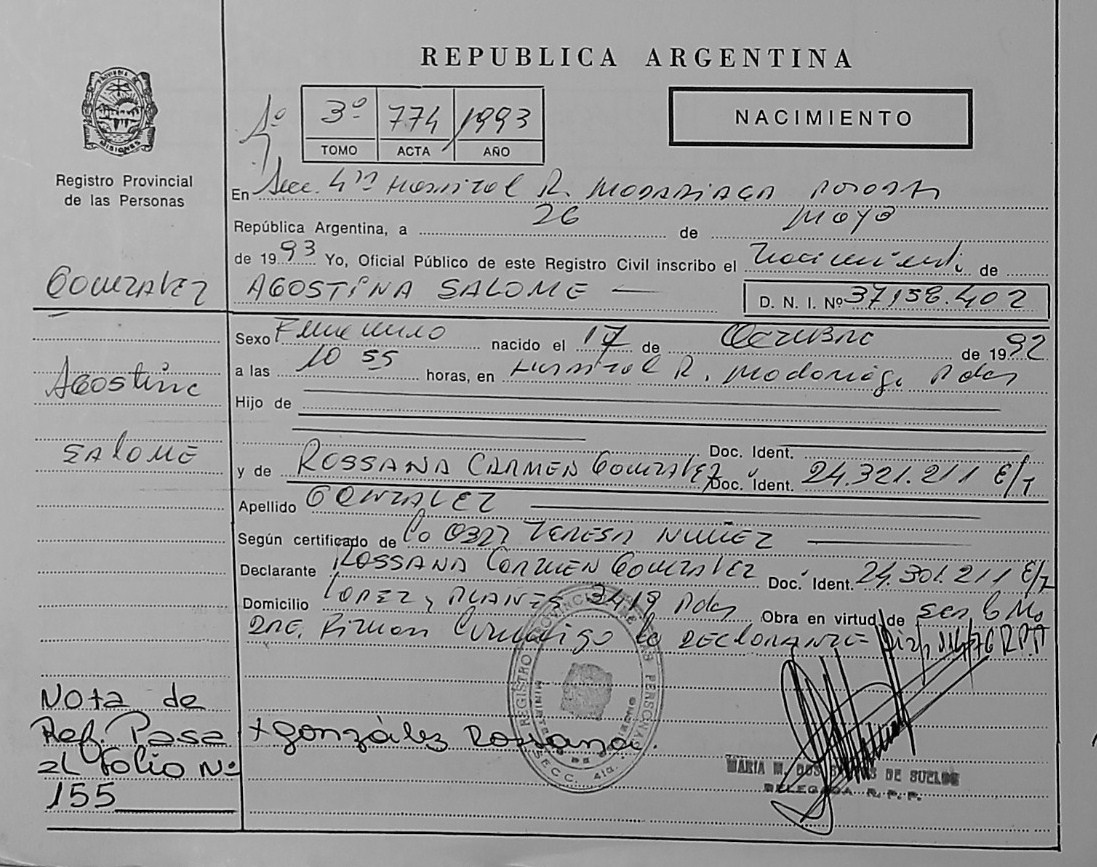 REPUBLICA ARGENTINA
3º 774 1993
TOMO ACTA AÑO
NACIMIENTO
Registro Provincial
de las Personas
En Secc. 4ta Hospital R. MADARIAGA POSADAS
República Argentina, a 26 de Mayo
de 1993 Yo, Oficial Público de este Registro Civil inscribo el Nacimiento de
GONZALEZ
AGOSTINA SALOME
D. N. I. Nº 37.158.402
Sexo Femenino nacido el 17 de OCTUBRE de 1992
a las 10 55 horas, en Hospital R. Madariaga Pdas
Agostina
Hijo de
Doc. Ident.
SALOME
y de ROSSANA CARMEN GONZALEZ Doc. Ident. 24.321.211 E/T
Apellido GONZALEZ
Según certificado de TERESA NUÑEZ
Declarante ROSSANA CARMEN GONZALEZ Doc. Ident. 24.301.211 E/T
Domicilio LOPEZ y PLANES Pdas Obra en virtud de ser la
Firman Conmigo la DECLARANTE
Nota de
Ref. Pasa
al folio Nº
155
+ González Rossana.
REGISTRO PROVINCIAL DE LAS PERSONAS
SECC. 4ta.
MARIA M. DOS DE SUELDO
DELEGADA R. P. P.